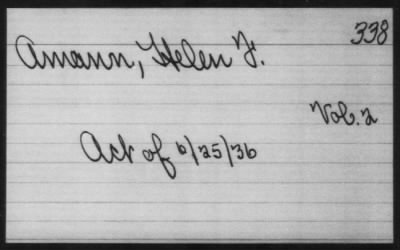 338
Amann, Helen F.
Vol. 2
Act of 6/25/36